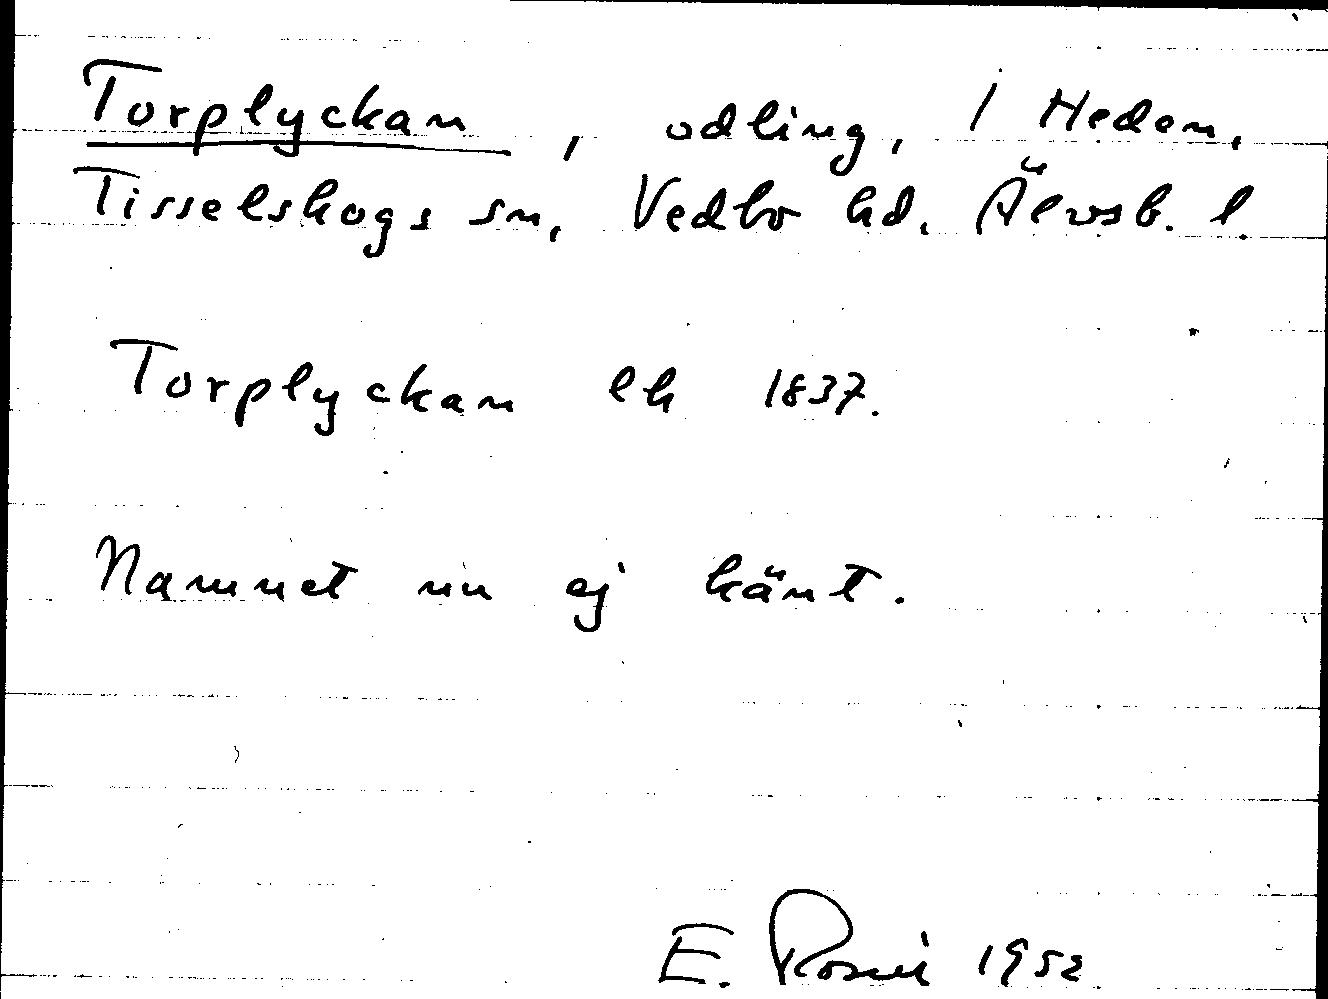 Torplyckan, odling, 1 Heden,
Tisselskogs sn, Vedbo hd. Älvsb. l.
Torplyckan lh 1837.
Namnet nu ej känt.
E. Rosin 1952